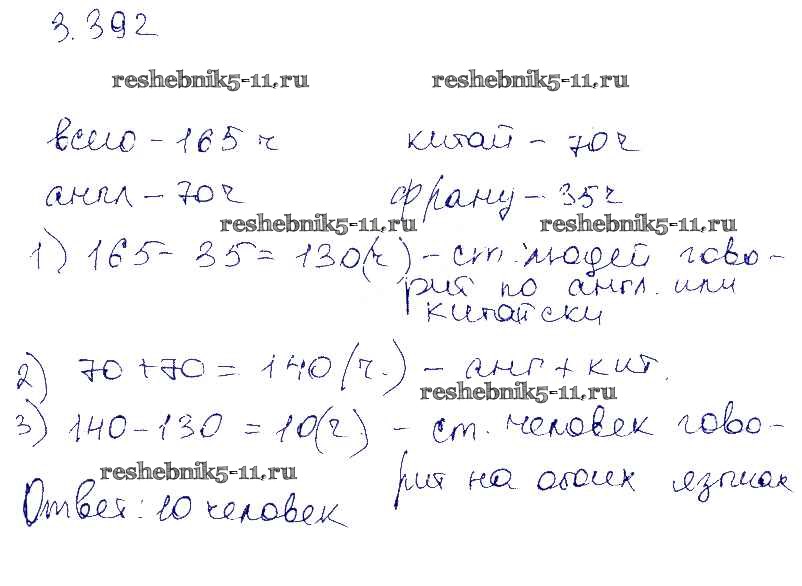 3.392
reshebnik5-11.ru reshebnik5-11.ru
всего - 165 ч китай - 70 ч
англ - 70 ч франц - 35 ч
reshebnik5-11.ru reshebnik5-11.ru
1) 165 - 35 = 130 (ч) - ст. людей гово-
рит по англ. или
китайски
2) 70 + 70 = 140 (ч.) - анг + кит.
reshebnik5-11.ru
3) 140 - 130 = 10 (ч) - ст. человек гово-
reshebnik5-11.ru
рит на обоих языках
Ответ: 10 человек